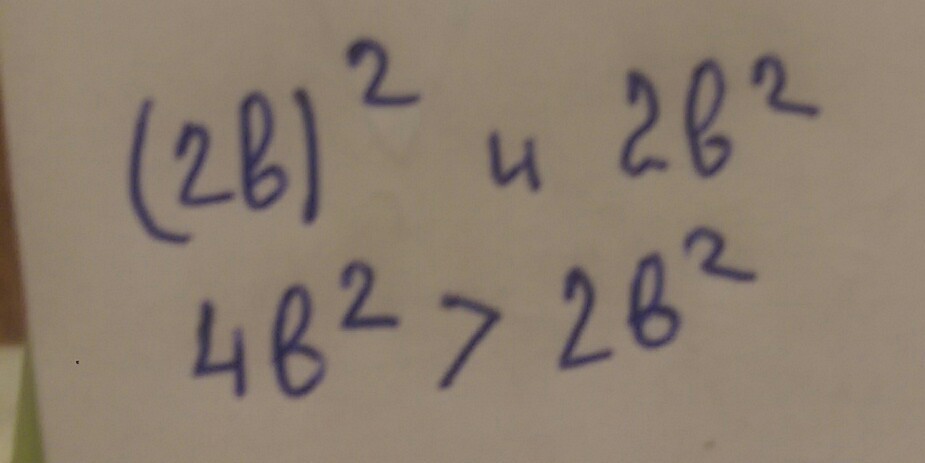 (2в)² и 2в²
4в² > 2в²